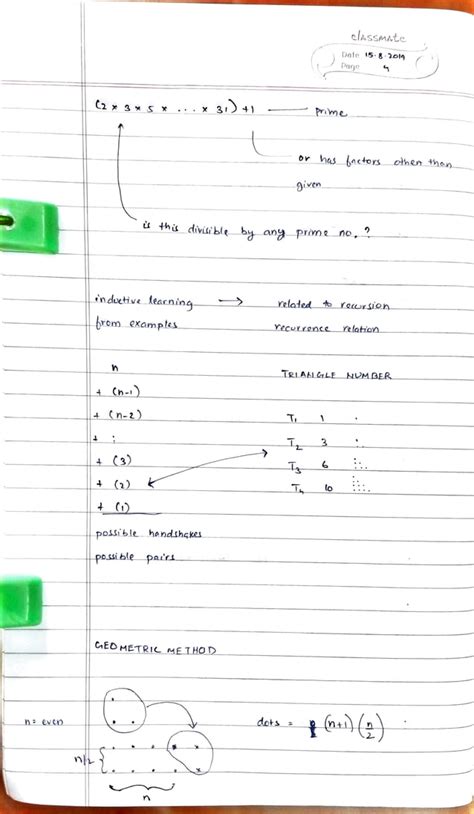 classmate
Date 15.8.2019
Page 4
(2 × 3 × 5 × ... × 31) + 1 — prime
or has factors other than
given
is this divisible by any prime no. ?
inductive learning → related to recursion
from examples recurrence relation
n TRIANGLE NUMBER
+ (n-1)
+ (n-2) T₁ 1
+ ⋮ T₂ 3
+ (3) T₃ 6
+ (2) T₄ 10
+ (1)
possible handshakes
possible pairs
GEOMETRIC METHOD
n = even dots = (n+1) (n/2)
n/2 {
n